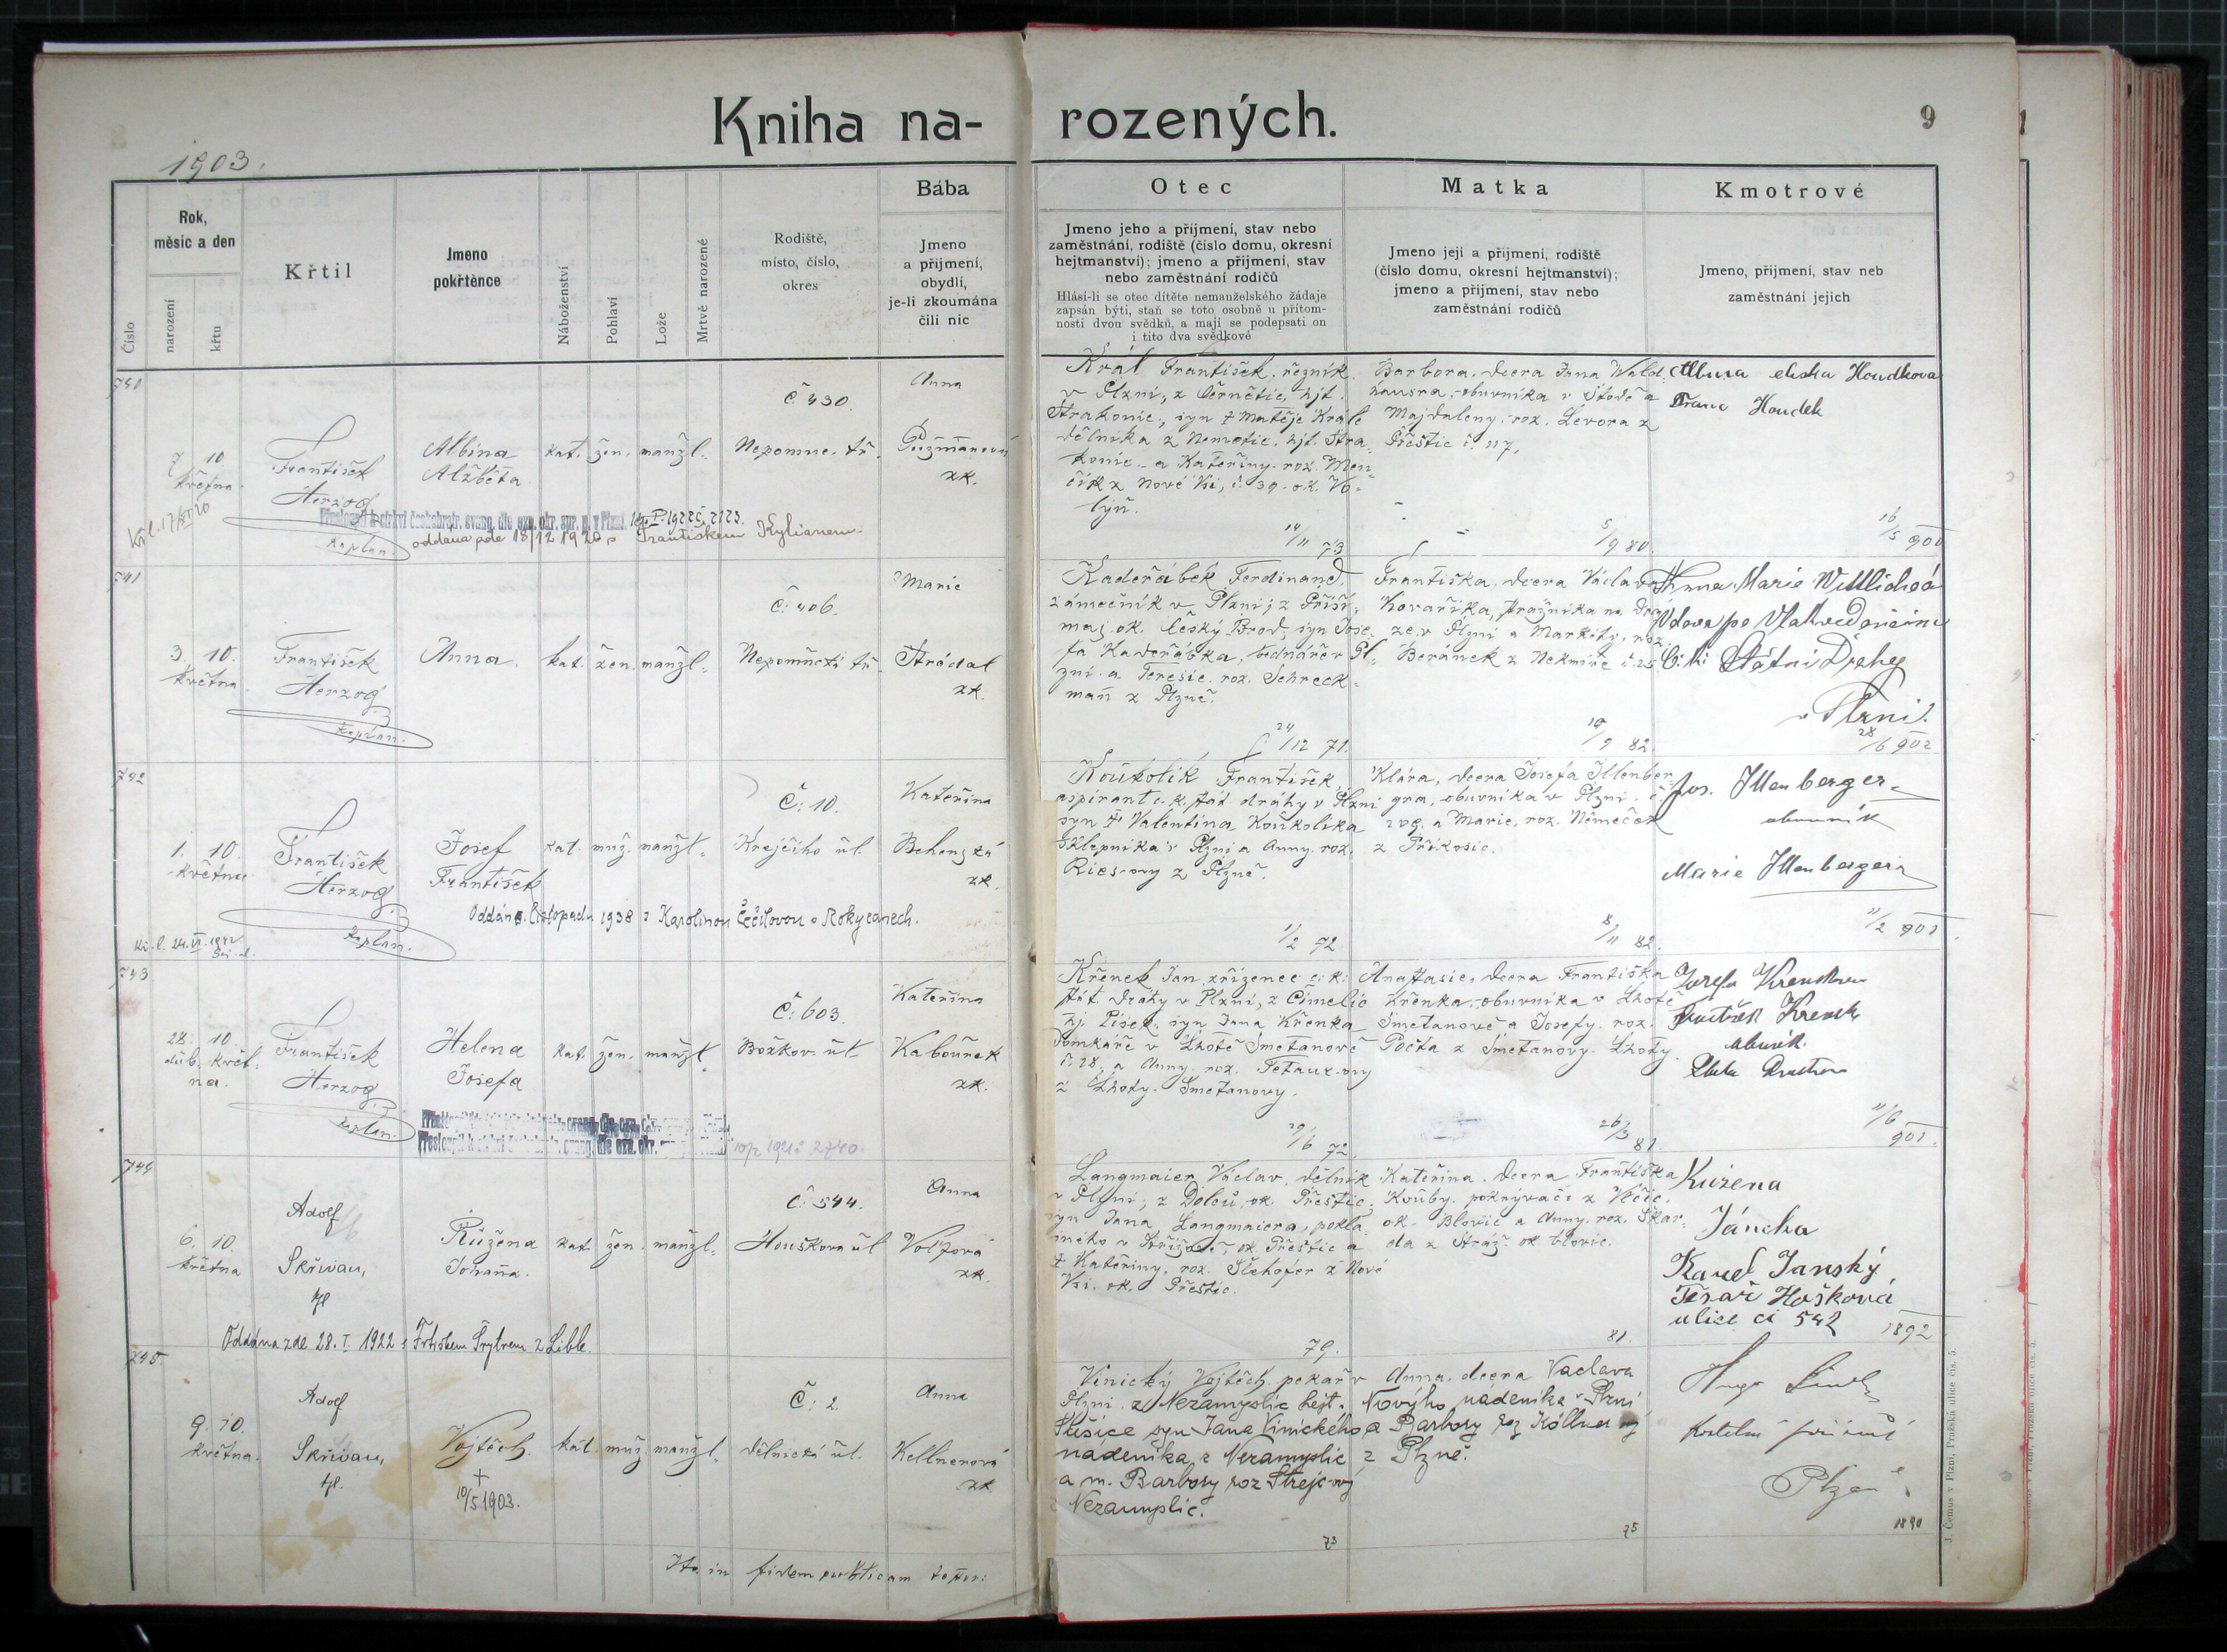 Kniha na-rozených.
9
1903.
Číslo
Rok,
měsíc a den
narození
křtu
Křtil
Jmeno
pokřtěnce
Náboženství
Pohlaví
Lože
Mrtvě narozené
Rodiště,
místo, číslo,
okres
Bába
Jmeno
a příjmení,
obydlí,
je-li zkoumána
čili nic
Otec
Jmeno jeho a příjmení, stav nebo
zaměstnání, rodiště (číslo domu, okresní
hejtmanství); jmeno a příjmení, stav
nebo zaměstnání rodičů
Hlásí-li se otec dítěte nemanželského žádaje
zapsán býti, staň se toto osobně u přítom-
nosti dvou svědků, a mají se podepsati on
i tito dva svědkové
Matka
Jmeno její a příjmení, rodiště
(číslo domu, okresní hejtmanství);
jmeno a příjmení, stav nebo
zaměstnání rodičů
Kmotrové
Jmeno, příjmení, stav neb
zaměstnání jejich
7 10
května
František
Herzog
kaplan.
Albina
Alžběta
kat. žen. manžl.
Č 430.
Nepomuc. tř.
Anna
zk.
oddána dle 18/12 1920 s Františkem Kyliánem
Král František, řezník
v Plzni, z Černětic, hjt.
Strakonic, syn † Matěje Krále
dělníka z Nemětic, hjt. Stra-
konic a Kateřiny roz. Men-
čík z Nové Vsi, č. 39. ok. Vo-
lyň.
14/11 73
Barbora, dcera Jana Wald-
hausra, obuvníka v Stodě a
Majdaleny, roz. Levora z
Přeštic č. 117.
5/9 80
Houdkova
Franc Houdek
16/5 900
741
3. 10.
května
František
Herzog
kaplan.
Anna.
kat. žen. manžl.
Č: 406.
Nepomucká tř
Marie
Strádal
zk.
Kadeřábek Ferdinand,
zámečník v Plzni, z Příši-
mas ok. Český Brod, syn Jose-
fa Kadeřábka, bednáře v Pl-
zni a Terezie roz. Schreck-
mañ z Plzně.
24/12 71.
Františka, dcera Václava
Kovaříka, strážníka na drá-
ze v Plzni a Markéty, roz.
Beránek z Nekmíře č. 25.
19/9 82.
Anna Marie Wittlichová
Vdova po
Státní Dráhy
v Plzni.
28/6 902
742
1. 10.
května
František
Herzog
kaplan.
Josef
František
kat. muž. manžl.
Č: 10.
Krejčího ul.
Kateřina
zk.
Oddán 5. listopadu 1938 s Karolinou Čečilovou v Rokycanech.
Kouřkolík František,
aspirant c. k. stát. dráhy v Plzni
syn † Valentina Kouřkolíka
sklepníka v Plzni a Anny roz.
Riesovy z Plzně.
1/2 72
Klára, dcera Josefa Illenber-
gra, obuvníka v Plzni č.
208. a Marie, roz. Němeček
z Příkosic.
8/11 82.
Jos. Illenberger
obuvník
Marie Illenberger
11/2 901
743
28. 10.
dub. květ-
na.
František
Herzog
kaplan.
Helena
Josefa
kat. žen. manžl.
Č: 603.
Božkov. ul
Kateřina
Kabourek
zk.
Křenek Jan, zřízenec c. k.
stát. dráhy v Plzni, z Čimelic
hj. Písek, syn Jana Křenka
domkaře v Lhotě Smetanově
č. 28. a Anny roz. Tetaurovy
z Lhoty Smetanovy.
29/6 72
Anastasie, dcera Františka
Křenka, obuvníka v Lhotě
Smetanově a Josefy roz.
Počta z Smetanovy Lhoty.
26/3 81
František Křenek
obuvník
11/6 901.
744
6. 10.
května
Adolf
Skřivan,
Růžena
Johaña.
kat. žen. manžl.
Č: 544.
Houškova ul
Anna
Volfova
zk.
Oddána zde 28. I. 1922 s Frtiškem Šrytrem z Liblí.
Langmaier Václav, dělník
v Plzni, z Dolců, ok. Přeštic;
syn Jana Langmaiera,
v Střížově, ok. Přeštic a
† Kateřiny, roz. Šlehofer z Nové
Vsi. ok. Přeštic.
79.
Kateřina, dcera Františka
Kouby, pokrývače z Vlčic
ok. Blovic a Anny roz. Škar-
da z Stráž. ok blovic.
81.
Růžena
Jánská
Karel Janský
Tesař Hošková
ulice čí 542
1892
745
9. 10.
května.
Adolf
Skřivan,
Vojtěch.
†
10/5 1903.
kat. muž. manžl.
Č: 2.
dělnická ul.
Anna
Kellnerová
zk
Vinický Vojtěch, pekař v
Plzni z Nezamyslic hejt.
Sušice syn Jana Vinického
nádeníka z Nezamyslic
a m. Barbory roz Strejcový
Nezamyslic.
73
Anna, dcera Václava
Nového nádeníka v Plzni
a Barbory roz Köllnerový
z Plzně.
75
Hugo
Plzeň
1890
Ita in fidem publicam testor:
J. Černus v Plzni, Pražská ulice čís. 5.